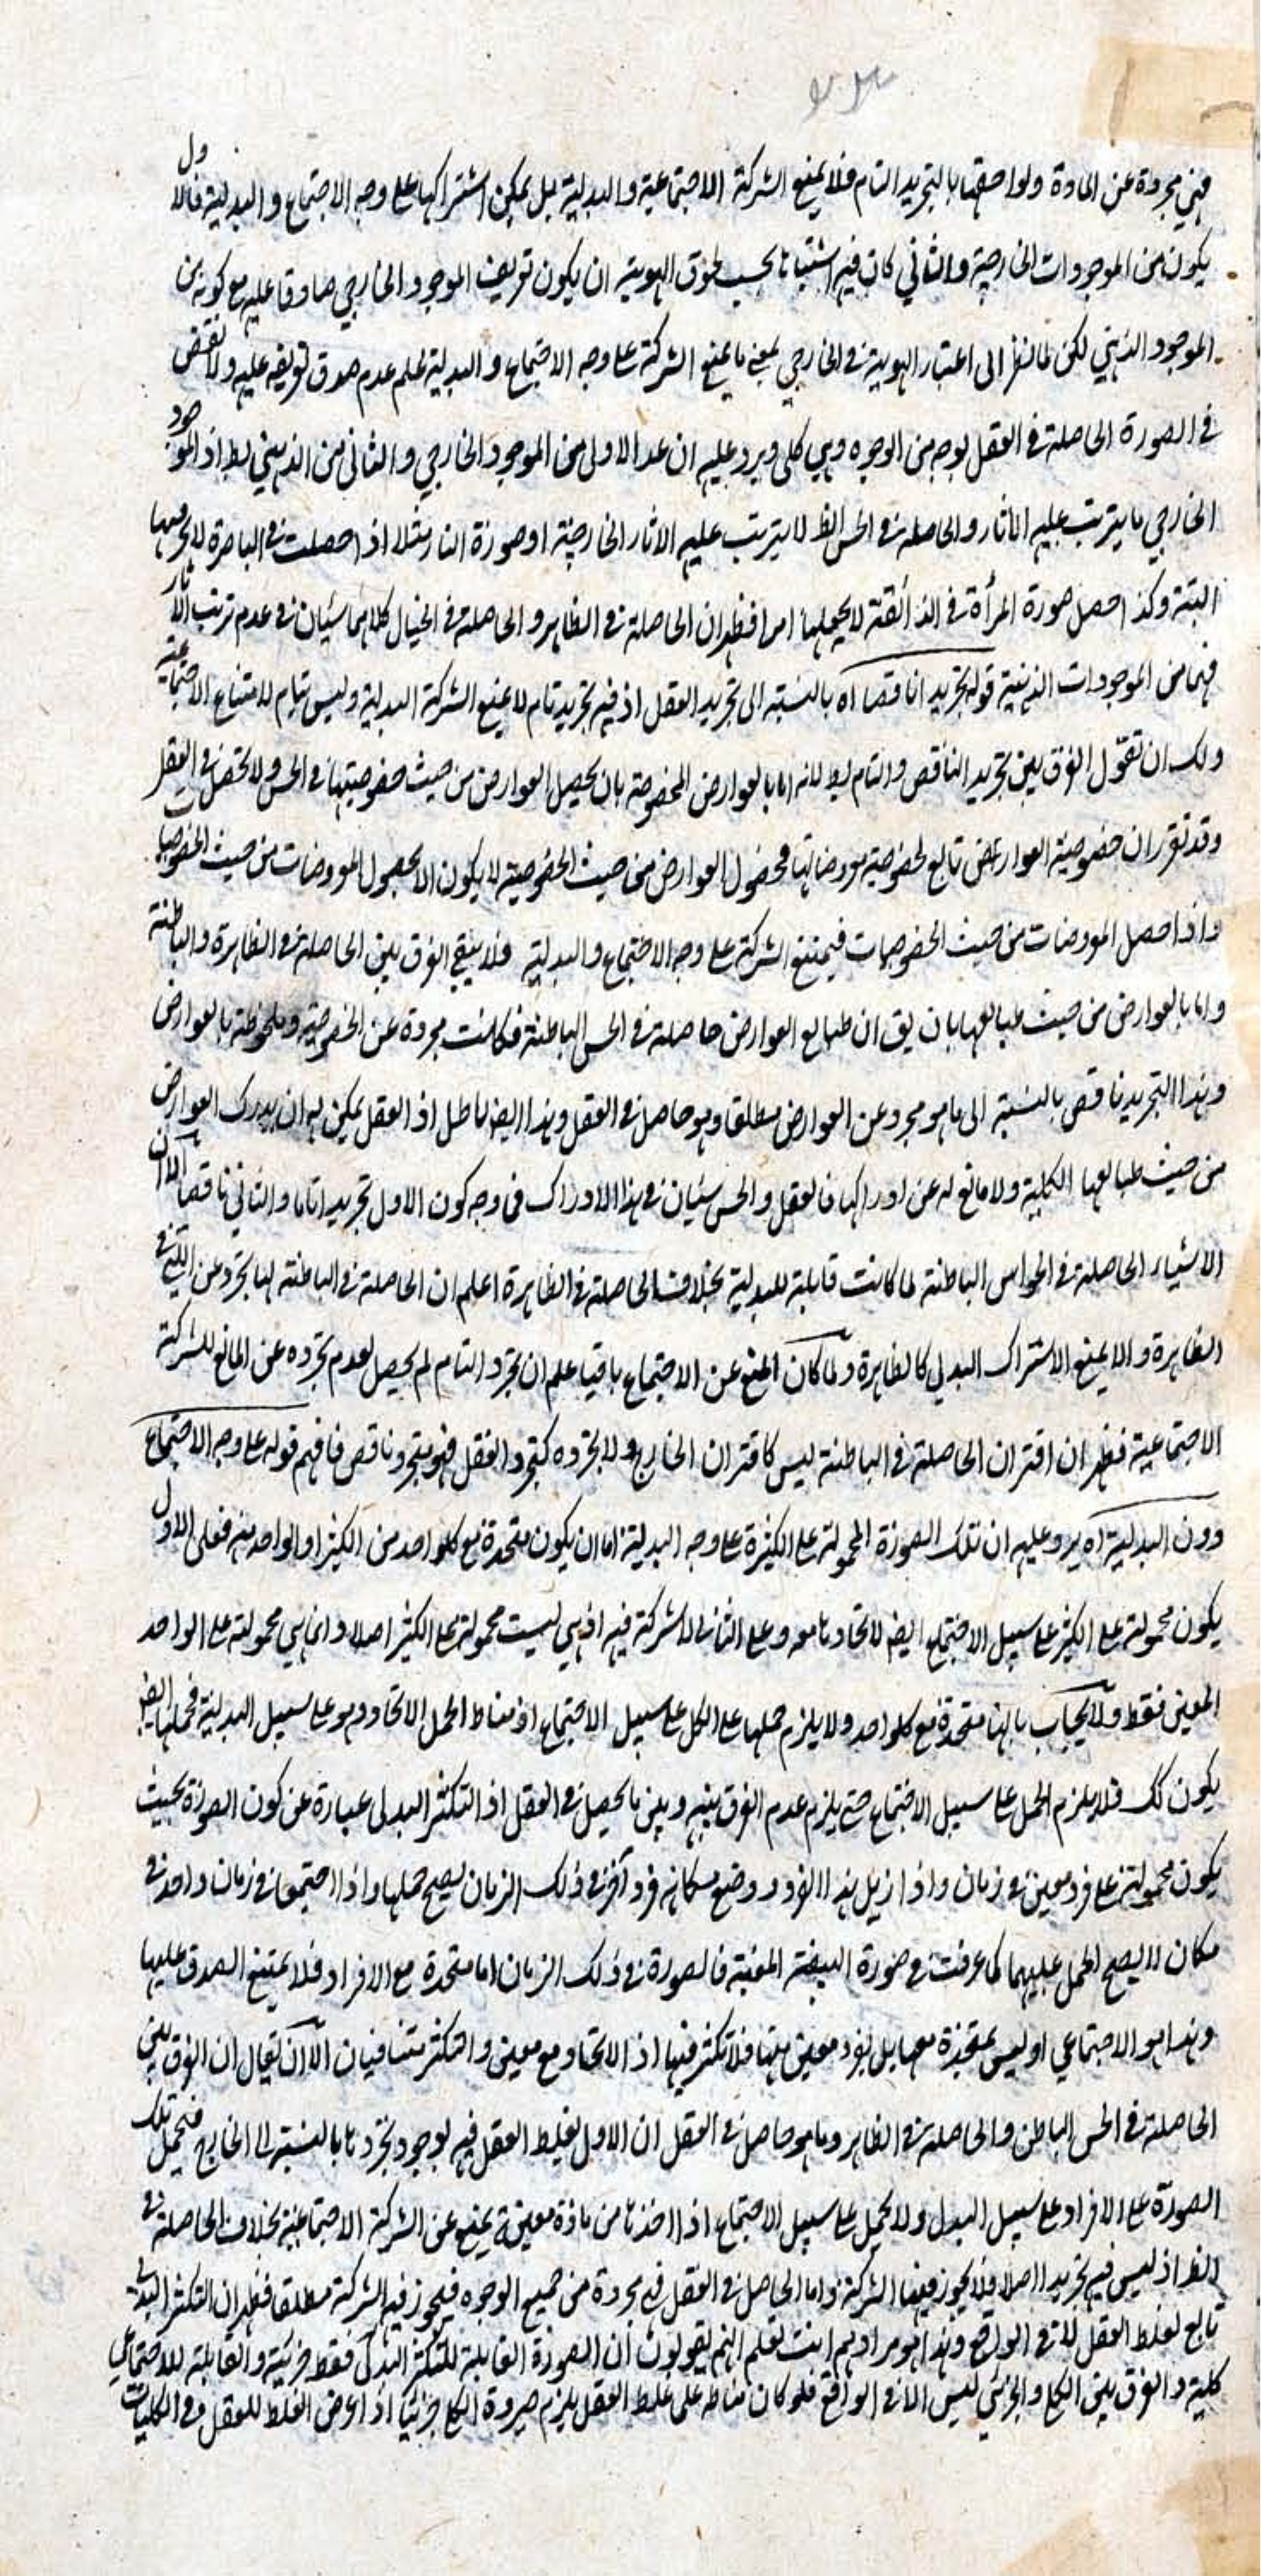 فهي مجردة عن المادة ولواحقها بالتجريد التام فلا يمنع الشركة الاجتماعية والبدلية بل يمكن اشتراكها على وجه الاجتماع والبدلية فالاول
يكون من الموجودات الخارجية والثاني كان فيه اشتباها بحسب لحوق الهوية ان يكون تعريف الموجود الخارجي صادقا عليه مع كونه من
الموجود الذهني لكن لما نظر الى اعتبار الهوية في الخارجي بمعنى ما يمنع الشركة على وجه الاجتماع والبدلية علم عدم صدق تعريفه عليه ولا نقض
في الصورة الحاصلة في العقل لوجه من الوجوه وهي كلي ويرد عليه ان عد الاولى من الموجود الخارجي والثاني من الذهني بط اذ الموجود
الخارجي ما يترتب عليه الآثار والحاصلة في الحس الظ لا يترتب عليه الاثار الخارجية او صورة النار مثلا اذا حصلت في الباصرة لا يحرقها
البتة وكذا حصل صورة المرأة في الذائقة لا يجعلها امرا فظهر ان الحاصلة في الظاهر والحاصلة في الخيال كلاهما سيان في عدم ترتب الآثار
فهما من الموجودات الذهنية قوله تجريدا ناقصا اه بالنسبة الى تجريد العقل اذ فيه تجريد تام لا يمنع الشركة البدلية وليس بتام لامتناع الاجتماعية
ولك ان تقول الفرق بين تجريد الناقص والتام بط لانه اما بالعوارض المخصوصة بان يحصل العوارض من حيث خصوصيتها في الحس ولا تحصل في العقل
وقد تقرر ان خصوصية العوارض تابع لخصوصية معروضاتها فحصول العوارض من حيث الخصوصية لا يكون الا بحصول المعروضات من حيث الخصوصيات
واذا حصل المعروضات من حيث الخصوصيات فيمتنع الشركة على وجه الاجتماع والبدلية فلا يبقى الفرق بين الحاصلة في الظاهرة والباطنة
واما بالعوارض من حيث طبائعها بان يق ان طبائع العوارض حاصلة في الحس الباطنة فكانت مجردة عن الخصوصية وملحوظة بالعوارض
وهذا التجريد ناقص بالنسبة الى ما هو مجرد عن العوارض مطلقا وهو حاصل في العقل وهذا ايض باطل اذ العقل يمكن له ان يدرك العوارض
من حيث طبائعها الكلية ولا مانع له عن ادراكها فالعقل والحس سيان في هذا الادراك في وجه كون الاول تجريدا تاما والثاني ناقصا الا ان
الاشياء الحاصلة في الحواس الباطنة لما كانت قابلة للبدلية بخلاف الحاصلة في الظاهرة اعلم ان الحاصلة في الباطنة لها تجرد عن التي في
الظاهرة والا يمنع الاشتراك البدلي كالظاهرة ولما كان المنع عن الاجتماع باقيا علم ان تجرد التام لم يحصل لعدم تجرده عن المانع للشركة
الاجتماعية فظهر ان اقتران الحاصلة في الباطنة ليس كاقتران الخارج ولا تجرده كتجرد العقل فهو تجرد ناقص فافهم قوله على وجه الاجتماع
دون البدلية اه يرد عليه ان تلك الصورة المحمولة على الكثيرة على وجه البدلية اما ان يكون متحدة مع كل واحد من الكثير او الواحد منه فعلى الاول
يكون محمولة على الكثير على سبيل الاجتماع ايض لاتحادها معه وعلى الثاني لا شركة فيه اذ هي ليست محمولة على الكثير اصلا وانما هي محمولة على الواحد
المعين فقط ولا يجاب بانها متحدة مع كل واحد ولا يلزم حملها على الكل على سبيل الاجتماع اذ مناط الحمل الاتحاد وهو على سبيل البدلية فحملها ايض
يكون كك فلا يلزم الحمل على سبيل الاجتماع حتى يلزم عدم الفرق بينه وبين ما يحصل في العقل اذ التكثر البدلي عبارة عن كون الصورة بحيث
يكون محمولة على فرد معين في زمان واذا ازيل هذا الفرد ووضع مكانه فرد آخر في ذلك الزمان يصح حملها واذا اجتمعا في زمان واحد في
مكان لا يصح الحمل عليهما كما عرفت في صورة البيضة المعينة فالصورة في ذلك الزمان اما متحدة مع الافراد فلا يمتنع الصدق عليها
وهذا هو الاجتماعي او ليس بمتحدة معها بل بفرد معين منها فلا تكثر فيها اذ الاتحاد مع معين والتكثر متنافيان الا ان يقال ان الفرق بين
الحاصلة في الحس الباطن والحاصلة في الظاهر وما هو حاصل في العقل ان الاول يغلط العقل فيه لوجود تجردها بالنسبة الى الخارج فتحمل تلك
الصورة على الافراد على سبيل البدل ولا يحمل على سبيل الاجتماع اذ اخذها من مادة معينة يمنع عن الشركة الاجتماعية بخلاف الحاصلة في
الظ اذ ليس فيه تجريد اصلا فلا يجوز فيها الشركة واما الحاصل في العقل فهي مجردة من جميع الوجوه فيجوز فيه الشركة مطلقا فظهر ان التكثر البدلي
تابع لغلط العقل لا في الواقع وهذا هو مرادهم انت تعلم انهم يقولون ان الصورة القابلة للتكثر البدلي فقط جزئية والقابلة للاجتماعي
كلية والفرق بين الكلي والجزئي ليس الا في الواقع فلو كان مناطه على غلط العقل يلزم صيرورة الكلي جزئيا اذا عرض الغلط للعقل في الكليات